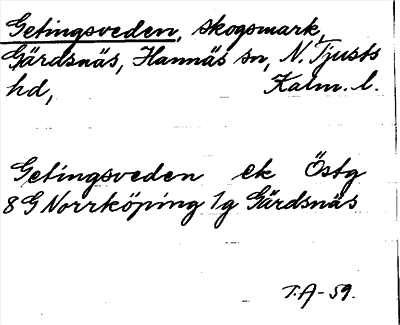 Getingsveden, skogsmark,
Gärdsnäs, Hannäs sn, N. Tjusts
hd, Kalm. l.
Getingsveden ek Östg
8 G Norrköping 1g Gärdsnäs
T.A - 59.